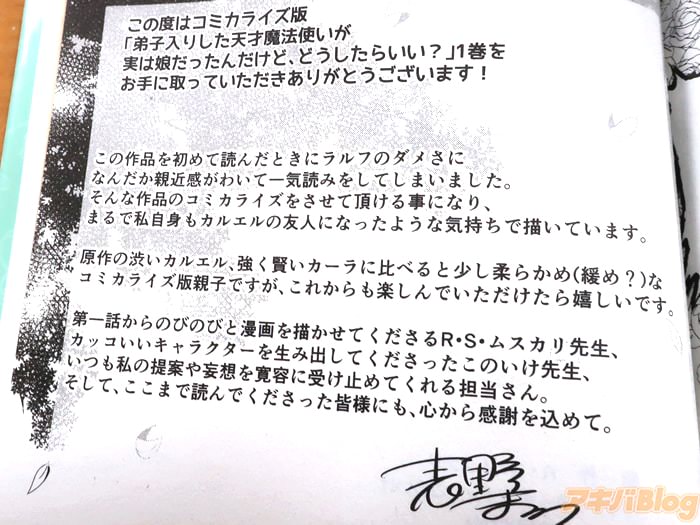 この度はコミカライズ版
「弟子入りした天才魔法使いが
実は娘だったんだけど、どうしたらいい？」1巻を
お手に取っていただきありがとうございます！
この作品を初めて読んだときにラルフのダメさに
なんだか親近感がわいて一気読みをしてしまいました。
そんな作品のコミカライズをさせて頂ける事になり、
まるで私自身もカルエルの友人になったような気持ちで描いています。
原作の渋いカルエル、強く賢いカーラに比べると少し柔らかめ(緩め？)な
コミカライズ版親子ですが、これからも楽しんでいただけたら嬉しいです。
第一話からのびのびと漫画を描かせてくださるR・S・ムスカリ先生、
カッコいいキャラクターを生み出してくださったこのいけ先生、
いつも私の提案や妄想を寛容に受け止めてくれる担当さん。
そして、ここまで読んでくださった皆様にも、心から感謝を込めて。
アキバBlog